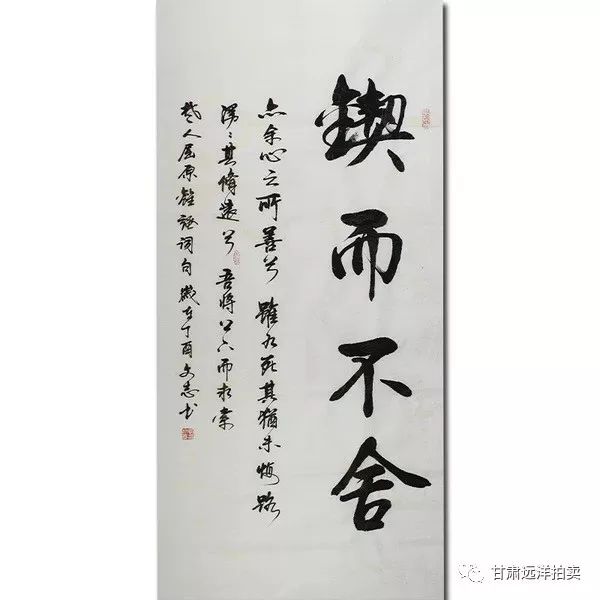 鍥而不舍
亦余心之所善兮 雖九死其猶未悔路
漫〻其脩遠兮 吾將上下而求索
楚人屈原離骚词句 歲在丁酉文志书
甘肃远洋拍卖